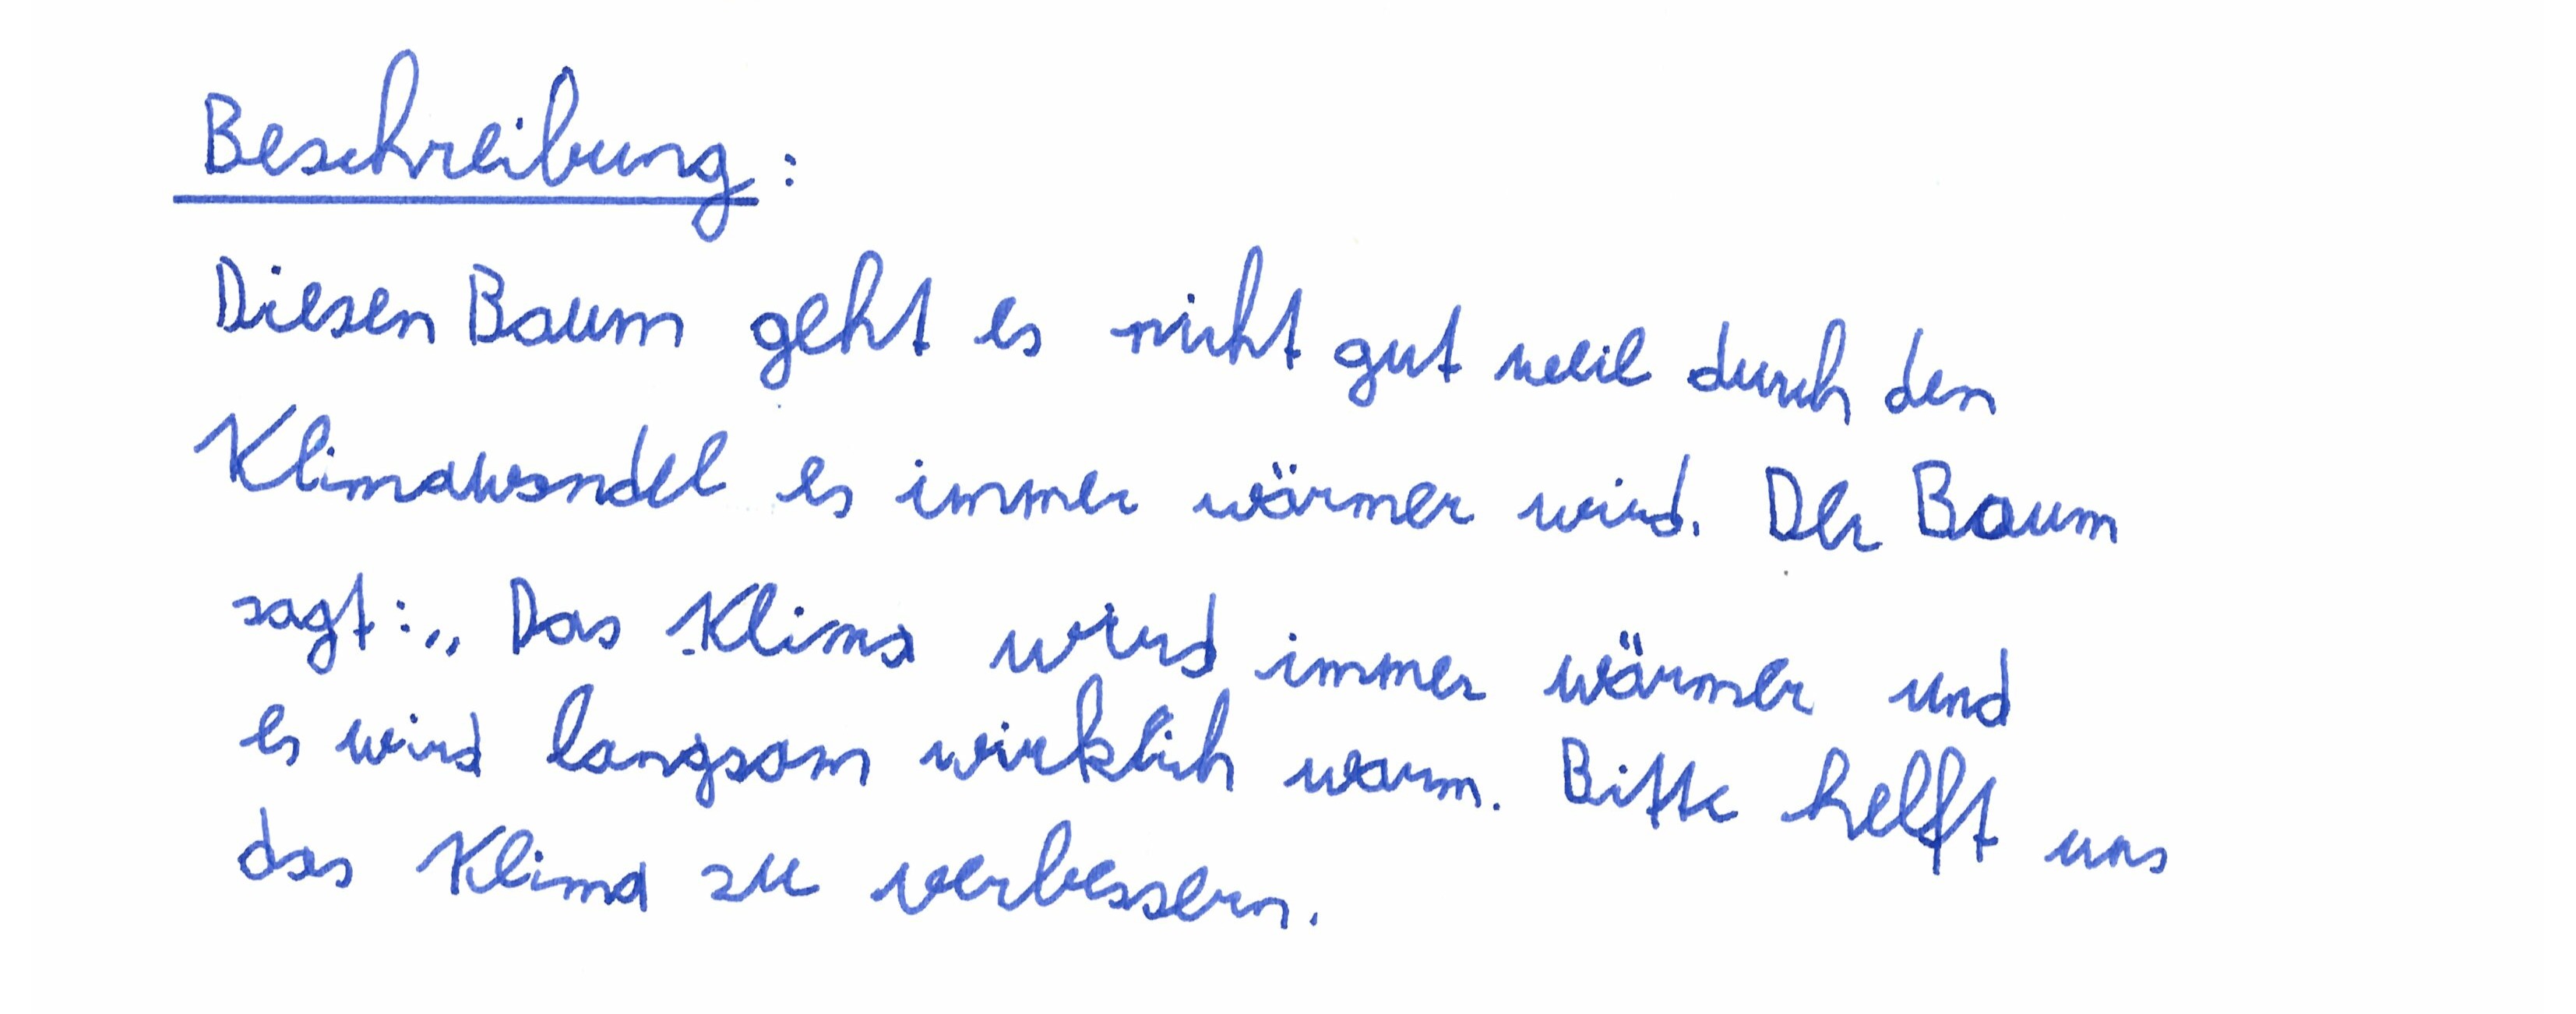 Beschreibung:
Diesen Baum geht es nicht gut weil durch den
Klimawandel es immer wärmer wird. Der Baum
sagt:„ Das Klima wird immer wärmer und
es wird langsam wirklich warm. Bitte helft uns
das Klima zu verbessern.